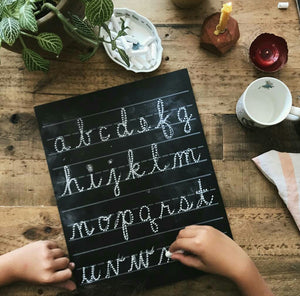 abcdefg
hijklm
nopqrst
uvw